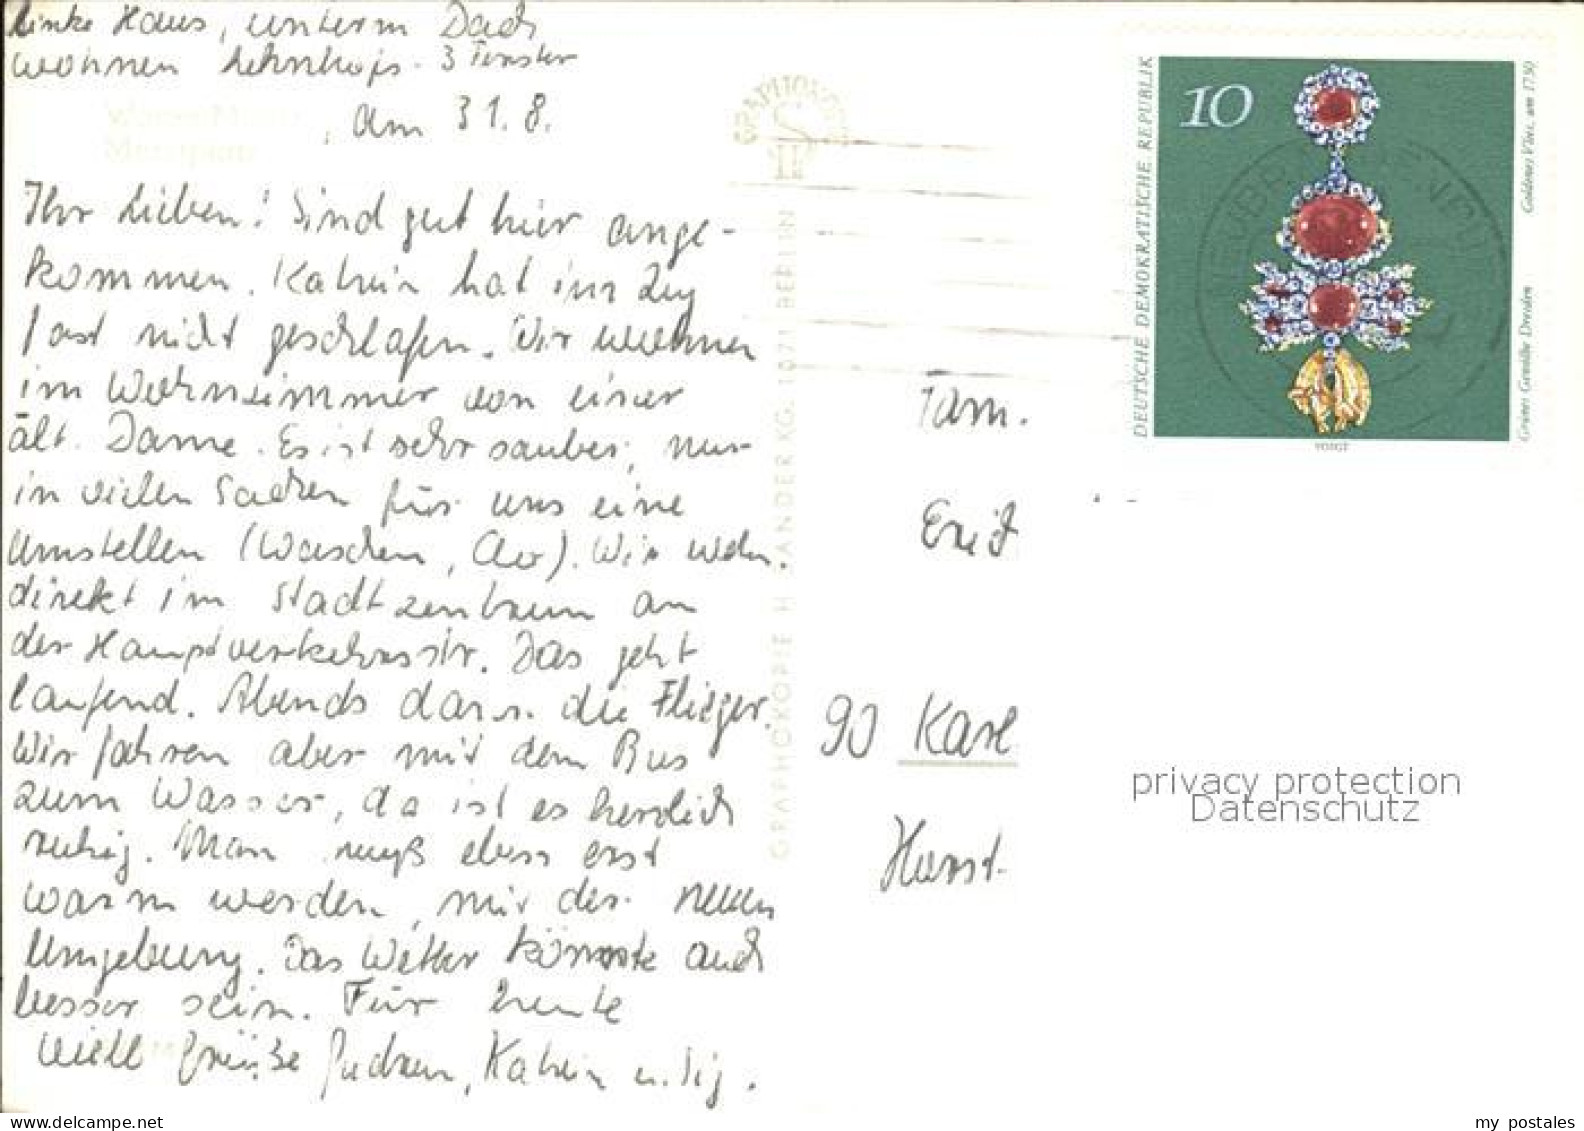 linke Haus, unterm Dach
wohnen 3 Fenster
am 31.8.
Ihr Lieben! Sind gut hier ange-
kommen. Katrin hat im Zug
fast nicht geschlafen. Wir wohnen
im Wohnzimmer von einer
ält. Dame. Es ist sehr sauber, nur
in vielen Sachen für uns eine
Umstellen (Waschen, Clo). Wir wohn.
direkt im Stadtzentrum an
der Hauptverkehrsstr. Das geht
laufend. Abends dann die Flieger.
Wir fahren aber mit dem Bus
zum Wasser, da ist es herrlich
ruhig. Man muß eben erst
warm werden, mit der neuen
Umgebung. Das Wetter könnte auch
besser sein. Für heute
viele Grüße Gudrun, Katrin u. Sig.
GRAPHOKOPIE H. SANDER KG. 1071 BERLIN
DEUTSCHE DEMOKRATISCHE REPUBLIK
10
Grünes Gewölbe Dresden
Goldenes Vlies, um 1750
VOIGT
Fam.
90 Karl
Horst-
privacy protection
Datenschutz
my postales
www.delcampe.net